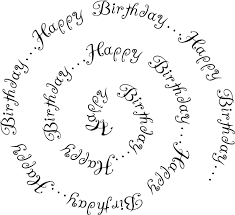 Happy Birthday...Happy Birthday...Happy Birthday...Happy Birthday...Happy Birthday...Happy Birthday...Happy Birthday